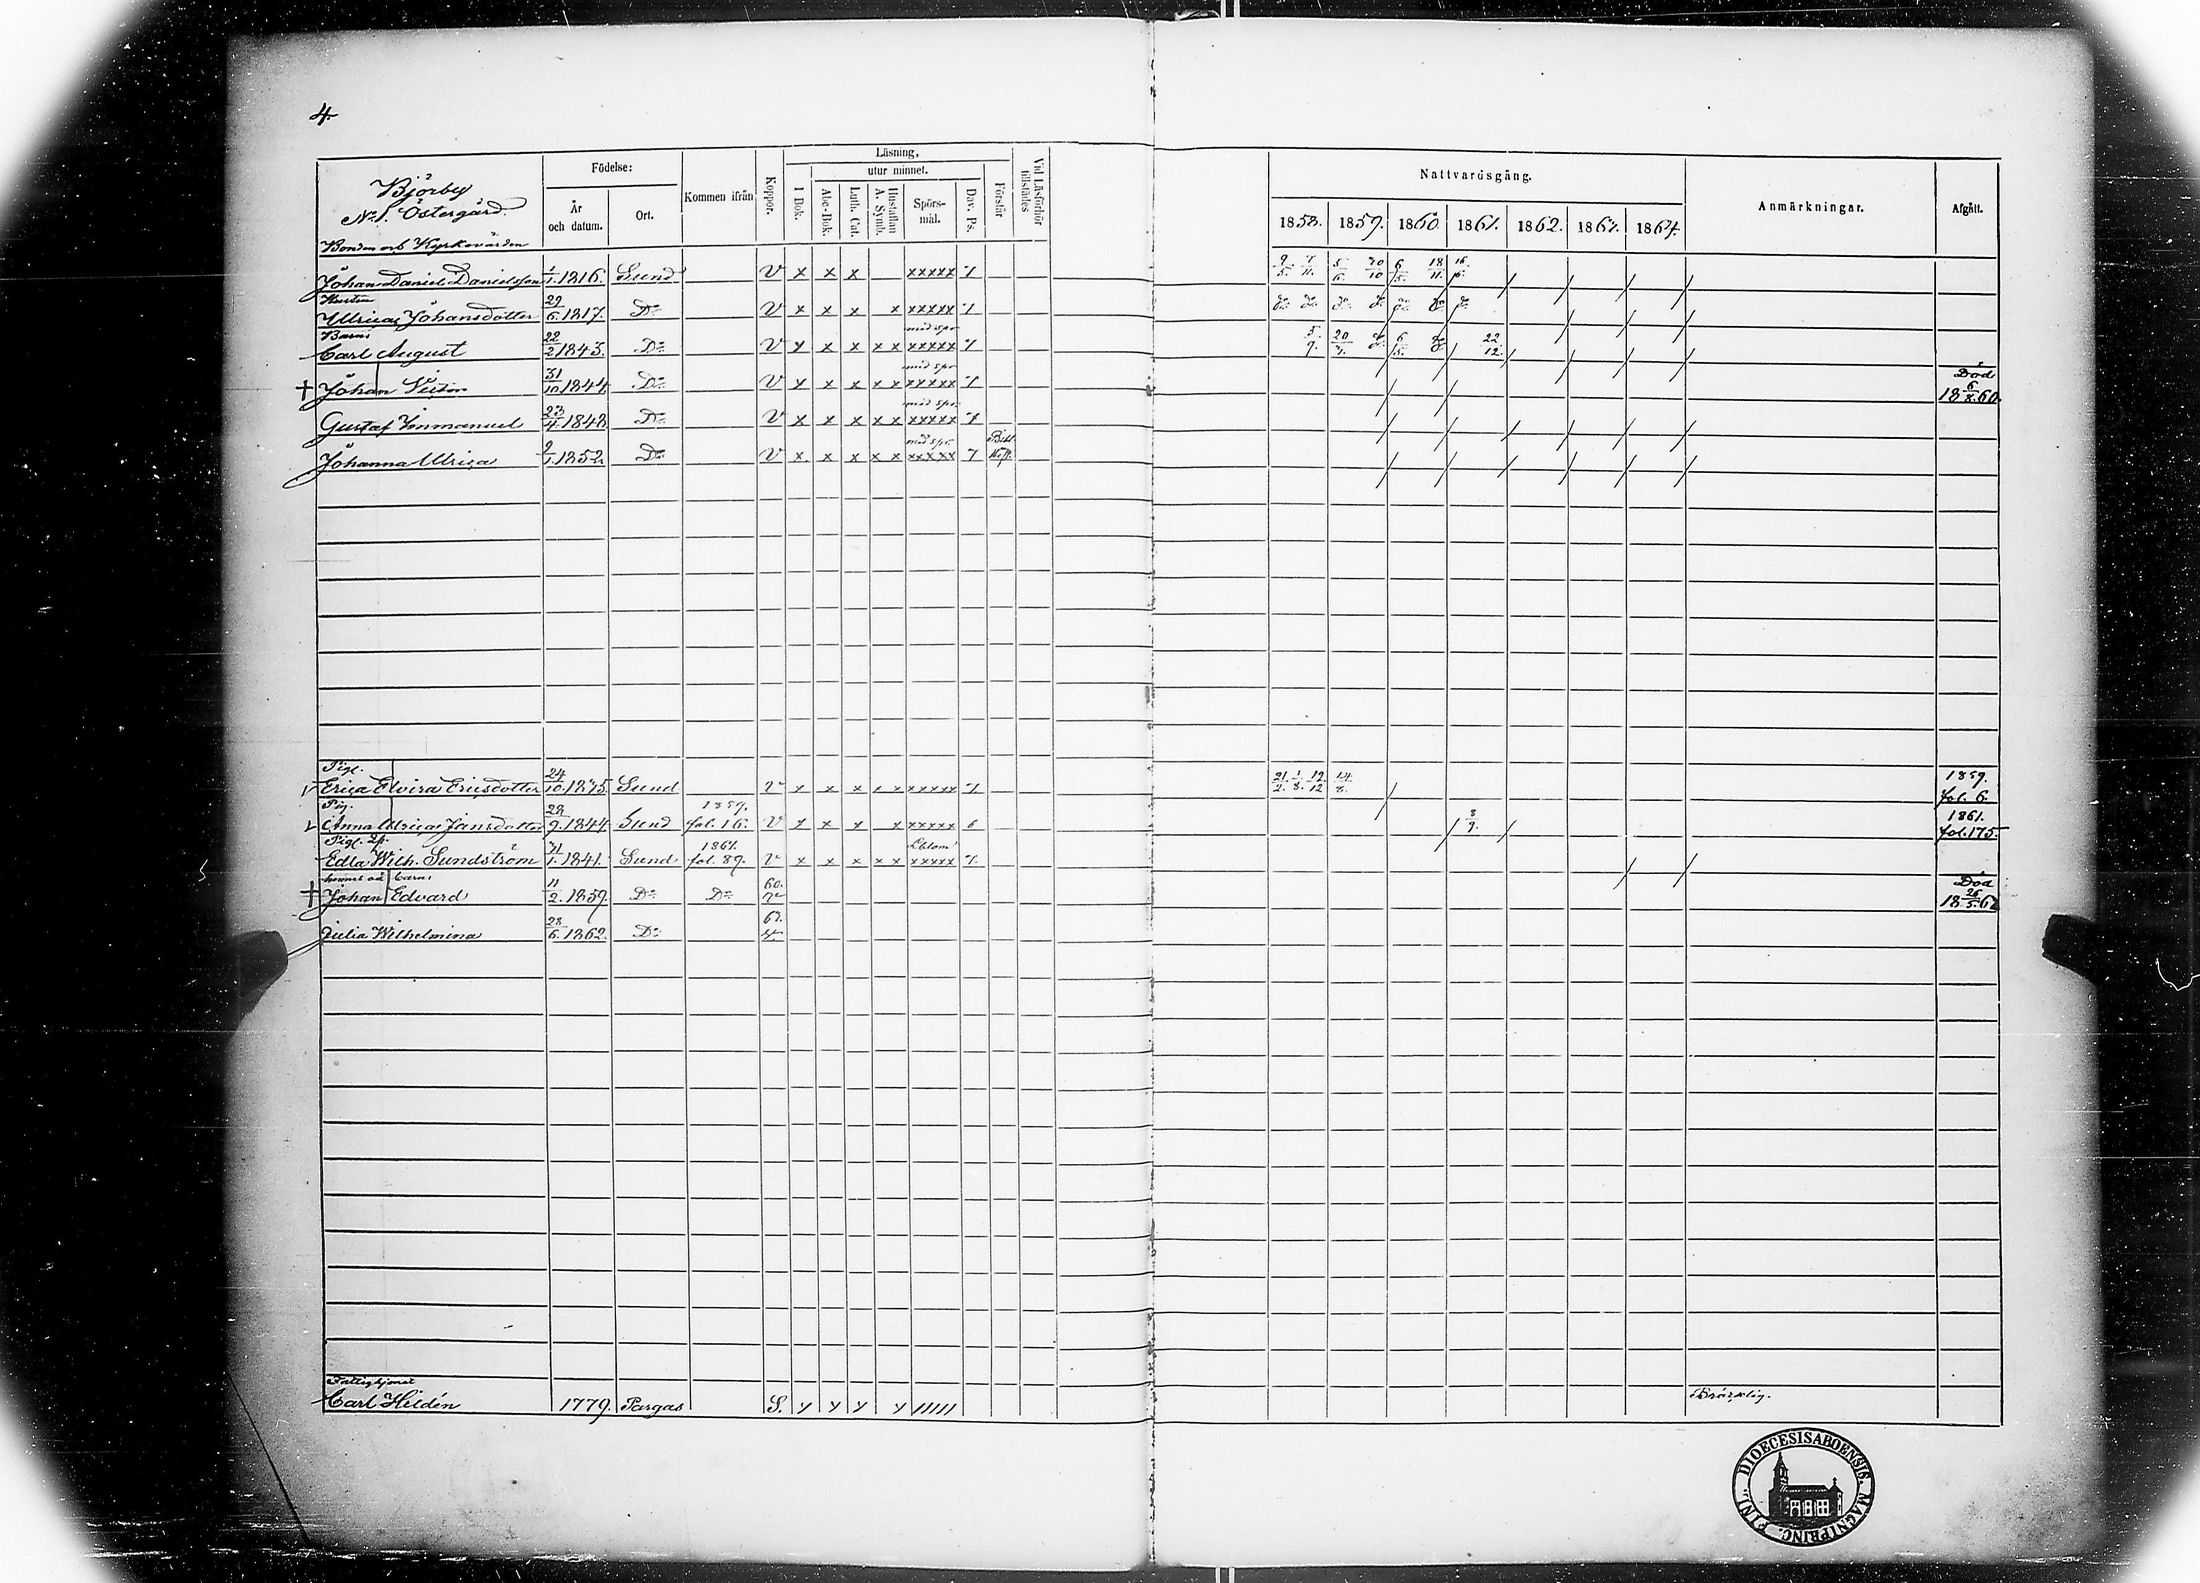 4.
Björby
No 1. Östergård.
Födelse:
År och datum.
Ort.
Kommen ifrån
Koppor.
Läsning,
utur minnet.
I Bok.
Abc-Bok.
Luth. Cat.
Hustaflan A. Symb.
Spörs-mål.
Dav. Ps.
Förstår
Vid Läsförhör tillstädes
Nattvardsgång.
1858. 1859. 1860. 1861. 1862. 1863. 1864.
Anmärkningar.
Afgått.
Bonden och Kyrkovärden
Johan Daniel Danielsson 1/1. 1816. Sund V x x x xxxxx 9/5. 5/6. 30/10 6/5. 18/11.
Hustru
Ulrica Johansdotter 29/6. 1817. Do V x x x x xxxxx do do do do do do do
Barn:
Carl August 22/2 1843. Do V x x x x x med spr xxxxx 5/9. 6/5. 22/12.
+ Johan 31/10 1844 Do V x x x x x med spr xxxxx Död 18 6/8. 60.
Gustaf Immanuel 23/4. 1848 Do V x x x x x med spr. xxxxx
Johanna Ulrica 9/1. 1852. Do V x. x x x x med spr. xxxxx 7
Pig.
Erica Elvira Ericsdotter 24/10. 1835. Sund v x x x x x xxxxx 21/2. 1/8. 12/12 14/8. 1859. fol. 6.
Pig.
Anna Ulrica Jansdotter 29/9. 1844. Sund 1859. fol. 16. V x x x x xxxxx 6 8/9. 1861. fol. 175.
Edla Wilh. Sundström 31/1. 1841. Sund 1863. fol. 89. v x x x x x xxxxx
hennes oä barn:
+ Johan Edvard 11/2. 1859. Do Do 60. v Död 18 26/5. 63
Julia Wilhelmina 28/6. 1862. Do 63. v
Fattighjonet
Carl Heldén 1779. Pargas S. y y y y ///// Bräcklig.
DIOECESIS ABOENSIS. MAGNI PRINC. FINL.